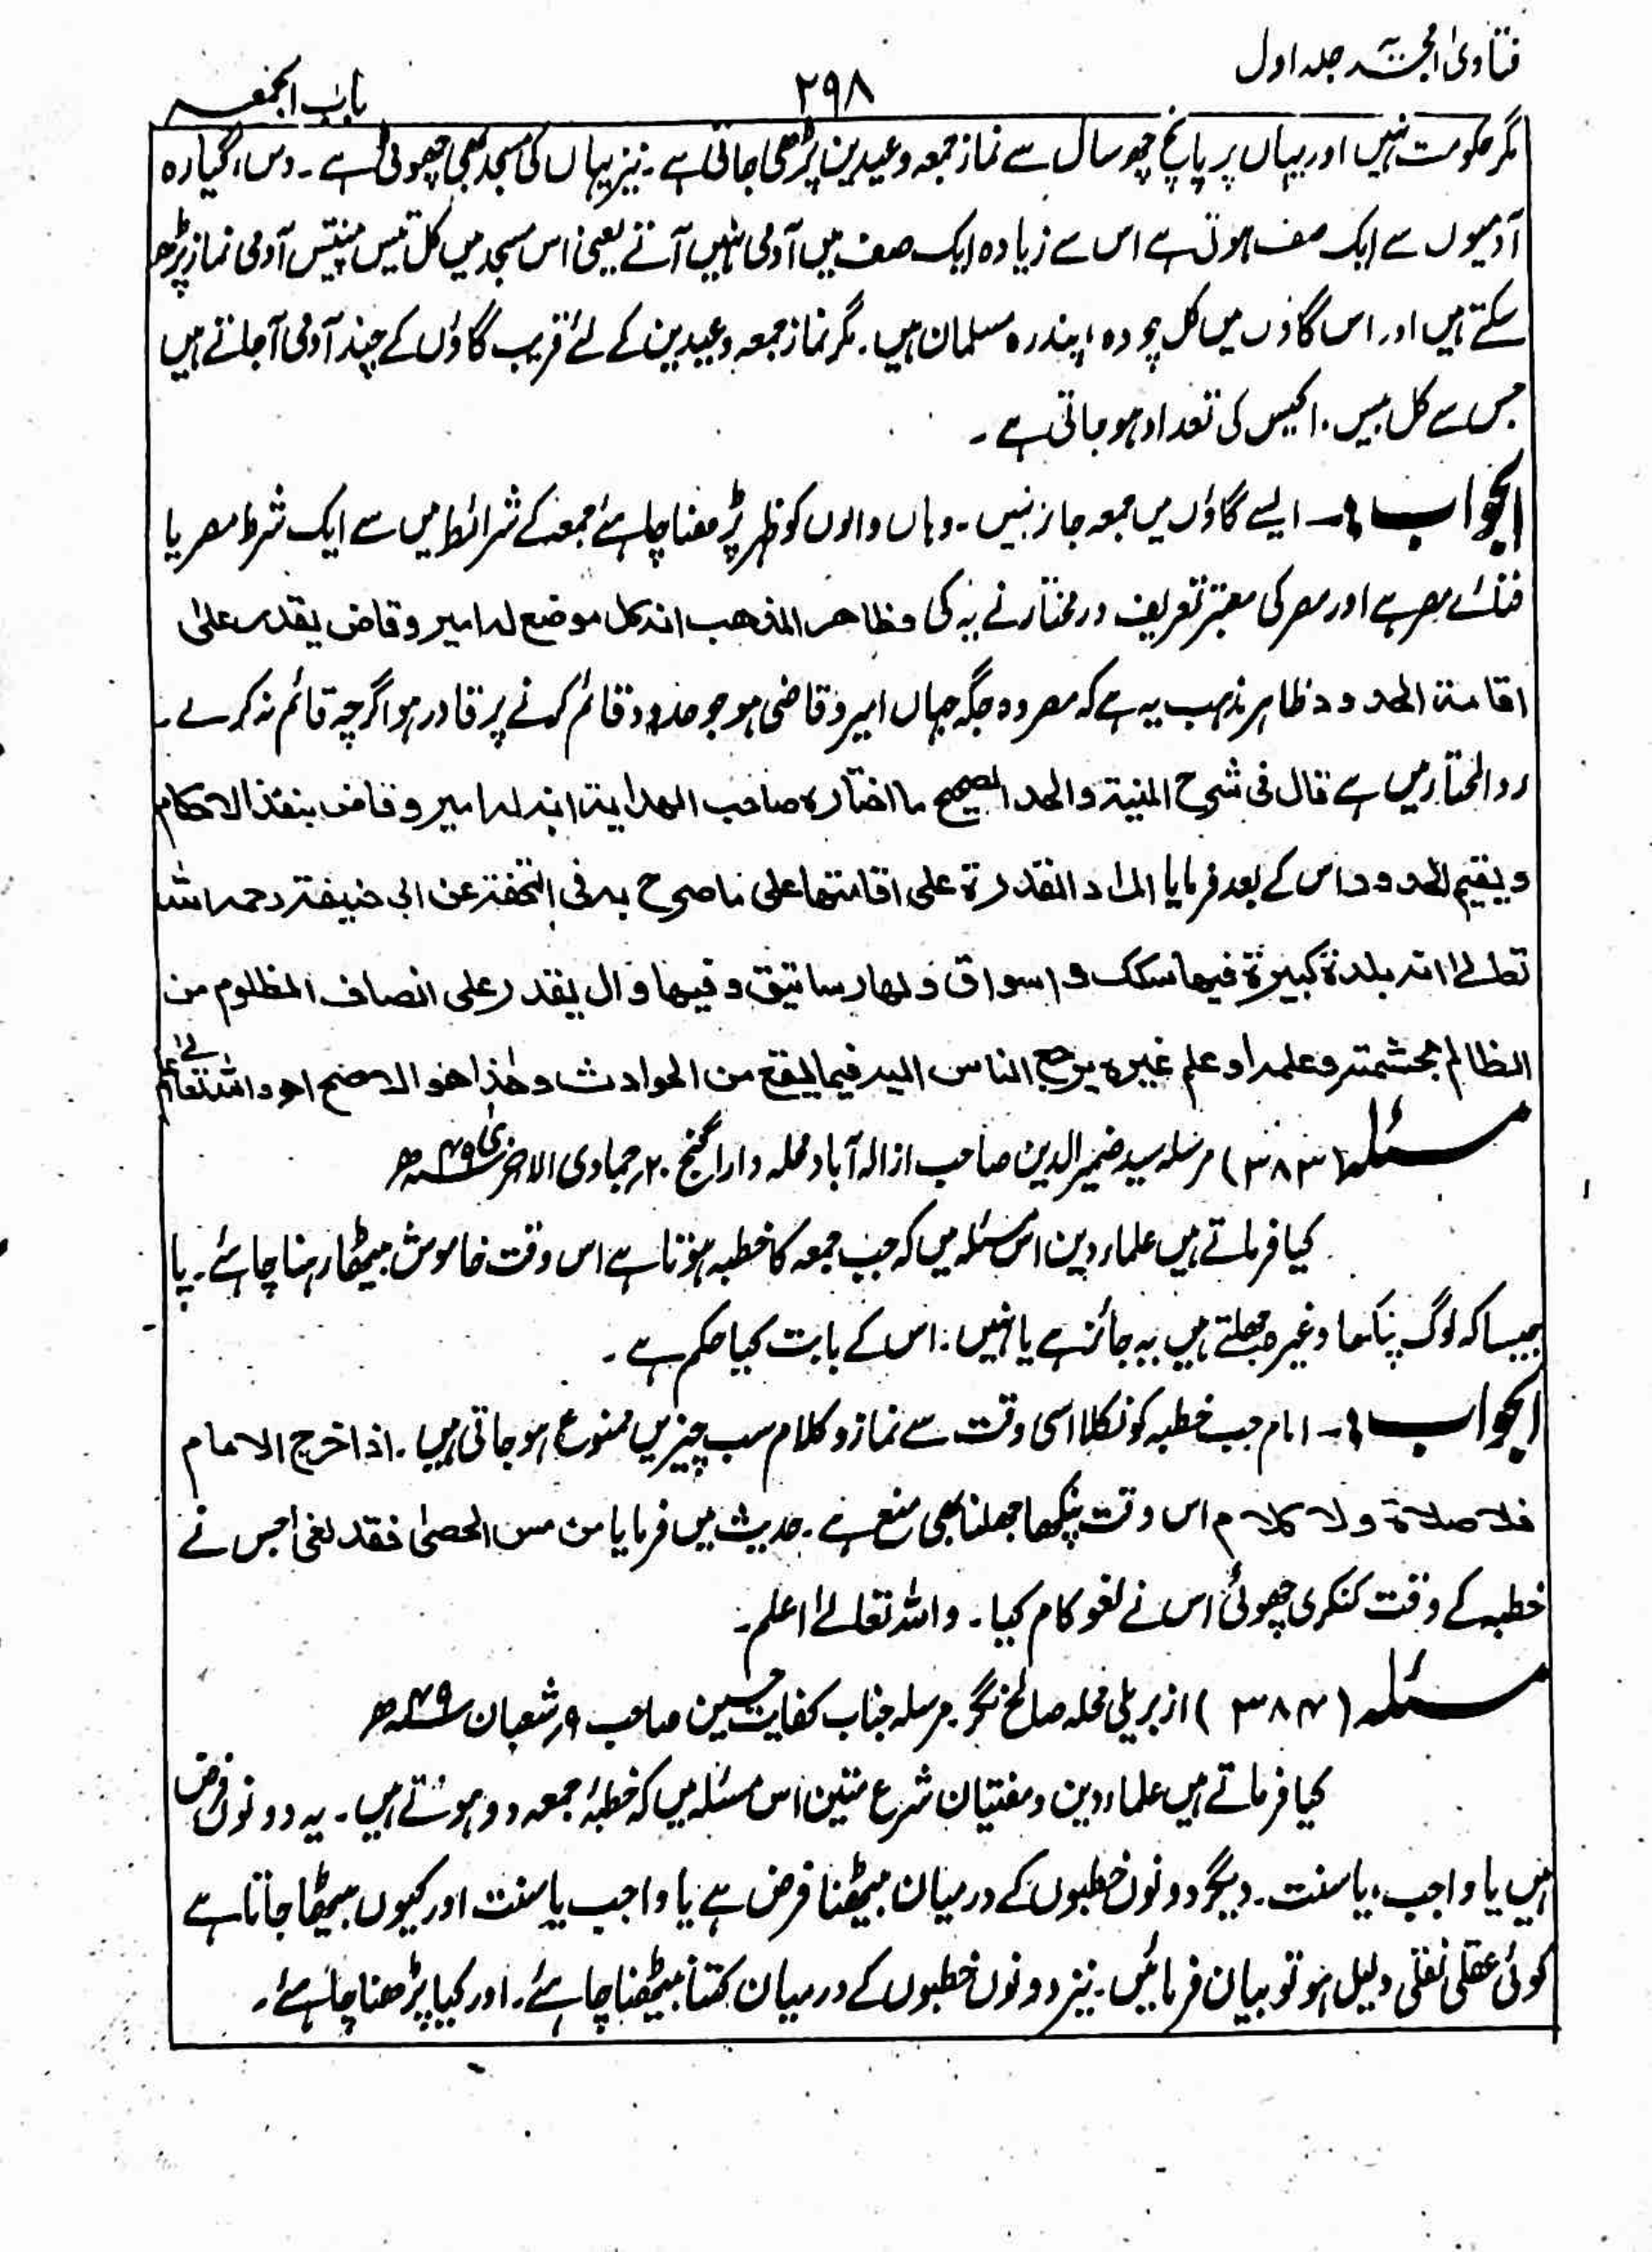 فتاویٰ امجدیہ جلد اول
۲۹۸
باب الجمعہ
مگر حکومت نہیں اور یہاں پر پانچ چھ سال سے نماز جمعہ و عیدین پڑھی جاتی ہے ۔ نیز یہاں کی مسجد بھی چھوٹی ہے ۔ دس، گیارہ
آدمیوں سے ایک صف ہوتی ہے اس سے زیادہ ایک صف میں آدمی نہیں آتے یعنی اس مسجد میں کل تیس پینتیس آدمی نماز پڑھ
سکتے ہیں اور اس گاؤں میں کل چودہ، پندرہ مسلمان ہیں ۔ مگر نماز جمعہ و عیدین کے لئے قریب گاؤں کے چند آدمی آجاتے ہیں
جس سے کل بیس، اکیس کی تعداد ہو جاتی ہے ۔
الجواب :۔ ایسے گاؤں میں جمعہ جائز نہیں ۔ وہاں والوں کو ظہر پڑھنا چاہئے جمعہ کے شرائط میں سے ایک شرط مصر یا
فنائے مصر ہے اور مصر کی معتبر تعریف درمختار نے یہ کی وظاھر المذھب انہ کل موضع لہ امیر وقاض یقدر علی
اقامۃ الحدود ظاہر مذہب یہ ہے کہ مصر وہ جگہ جہاں امیر و قاضی ہو جو حدود قائم کرنے پر قادر ہو اگرچہ قائم نہ کرے ۔
ردالمحتار میں ہے قال فی شرح المنیۃ والحد الصحیح ما اختارہ صاحب الھدایۃ انہ لہ امیر وقاض ینفذ الاحکام
ویقیم الحدود اس کے بعد فرمایا المراد القدرۃ علی اقامتھا علی ما صرح بہ فی التحفۃ عن ابی حنیفۃ رحمہ اللہ
تعالیٰ انہ بلدۃ کبیرۃ فیھا سکک و اسواق ولھا رساتیق وفیھا وال یقدر علی انصاف المظلوم من
الظالم بحشمتہ وعلمہ او علم غیرہ یرجع الناس الیہ فیما یقع من الحوادث وھٰذا ھو الاصح اھ واللہ تعالیٰ اعلم
مسئلہ (۳۸۳) مرسلہ سید ضمیر الدین صاحب از الہ آباد محلہ دارا گنج ۲۰؍جمادی الاخریٰ ۴۹ھ
کیا فرماتے ہیں علماء دین اس مسئلہ میں کہ جب جمعہ کا خطبہ ہوتا ہے اس وقت خاموش بیٹھا رہنا چاہئے ۔ یا
جیسا کہ لوگ پنکھا وغیرہ جھلتے ہیں یہ جائز ہے یا نہیں ۔ اس کے بابت کیا حکم ہے ۔
الجواب :۔ امام جب خطبہ کو نکلا اسی وقت سے نماز و کلام سب چیزیں ممنوع ہو جاتی ہیں ۔ اذا خرج الامام
فلا صلاۃ ولا کلام اس وقت پنکھا جھلنا بھی منع ہے ۔ حدیث میں فرمایا من مس الحصیٰ فقد لغیٰ جس نے
خطبہ کے وقت کنکری چھوئی اس نے لغو کام کیا ۔ واللہ تعالیٰ اعلم ۔
مسئلہ (۳۸۴) از بریلی محلہ صالح نگر ۔ مرسلہ جناب کفایت حسین صاحب ۹؍شعبان ۴۹ھ
کیا فرماتے ہیں علماء دین و مفتیان شرع متین اس مسئلہ میں کہ خطبۂ جمعہ دو ہوتے ہیں ۔ یہ دونوں فرض
ہیں یا واجب، یا سنت ۔ دیگر دونوں خطبوں کے درمیان بیٹھنا فرض ہے یا واجب یا سنت اور کیوں بیٹھا جاتا ہے
کوئی عقلی نقلی دلیل ہو تو بیان فرمائیں ۔ نیز دونوں خطبوں کے درمیان کتنا بیٹھنا چاہئے ۔ اور کیا پڑھنا چاہئے ۔